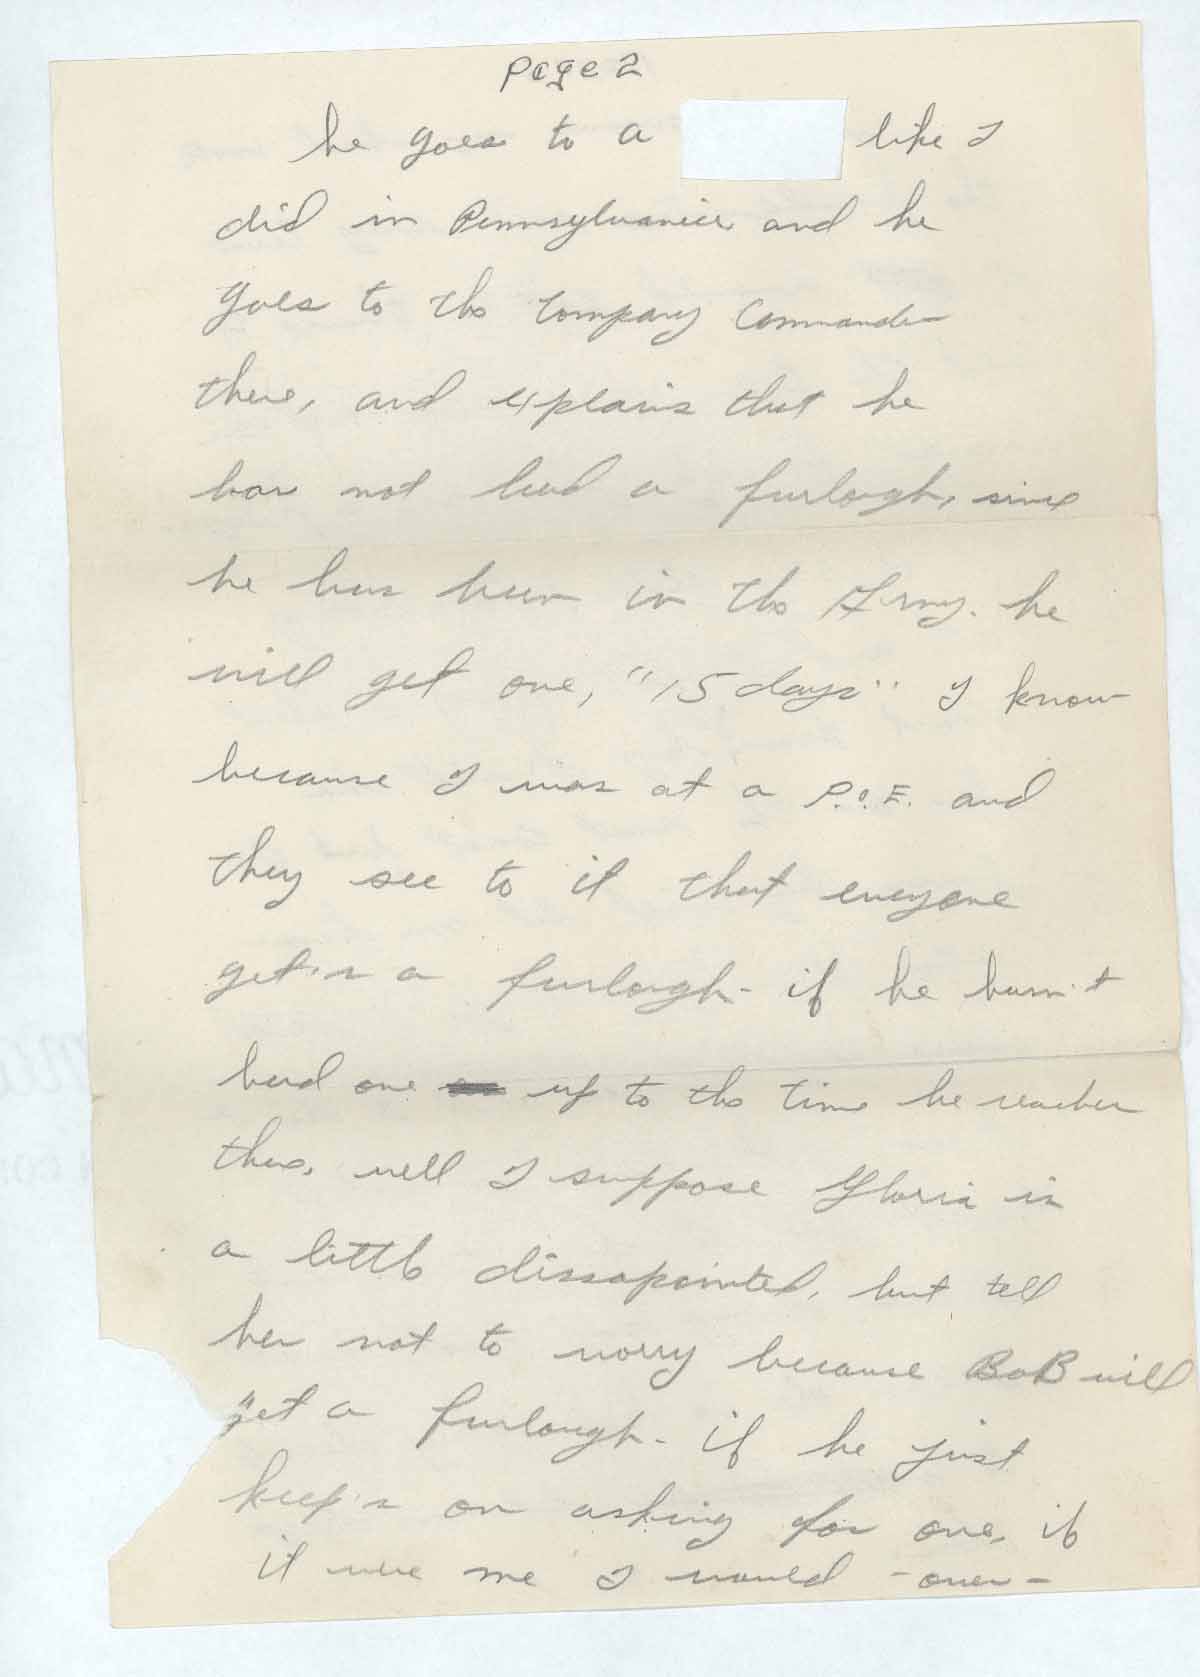 page 2
he goes to a like I
did in Pennsylvania and he
goes to the Company Commander
there, and explains that he
has not had a furlough, since
he has been in the Army. he
will get one, "15 days" I know
because I was at a P.O.E. and
they see to it that everyone
get's a furlough- if he hasn't
had one up to the time he reaches
there. well I suppose Gloria is
a little dissapointed, but tell
her not to worry because BoB will
get a furlough- if he just
keep's on asking for one, if
it were me I would -over-